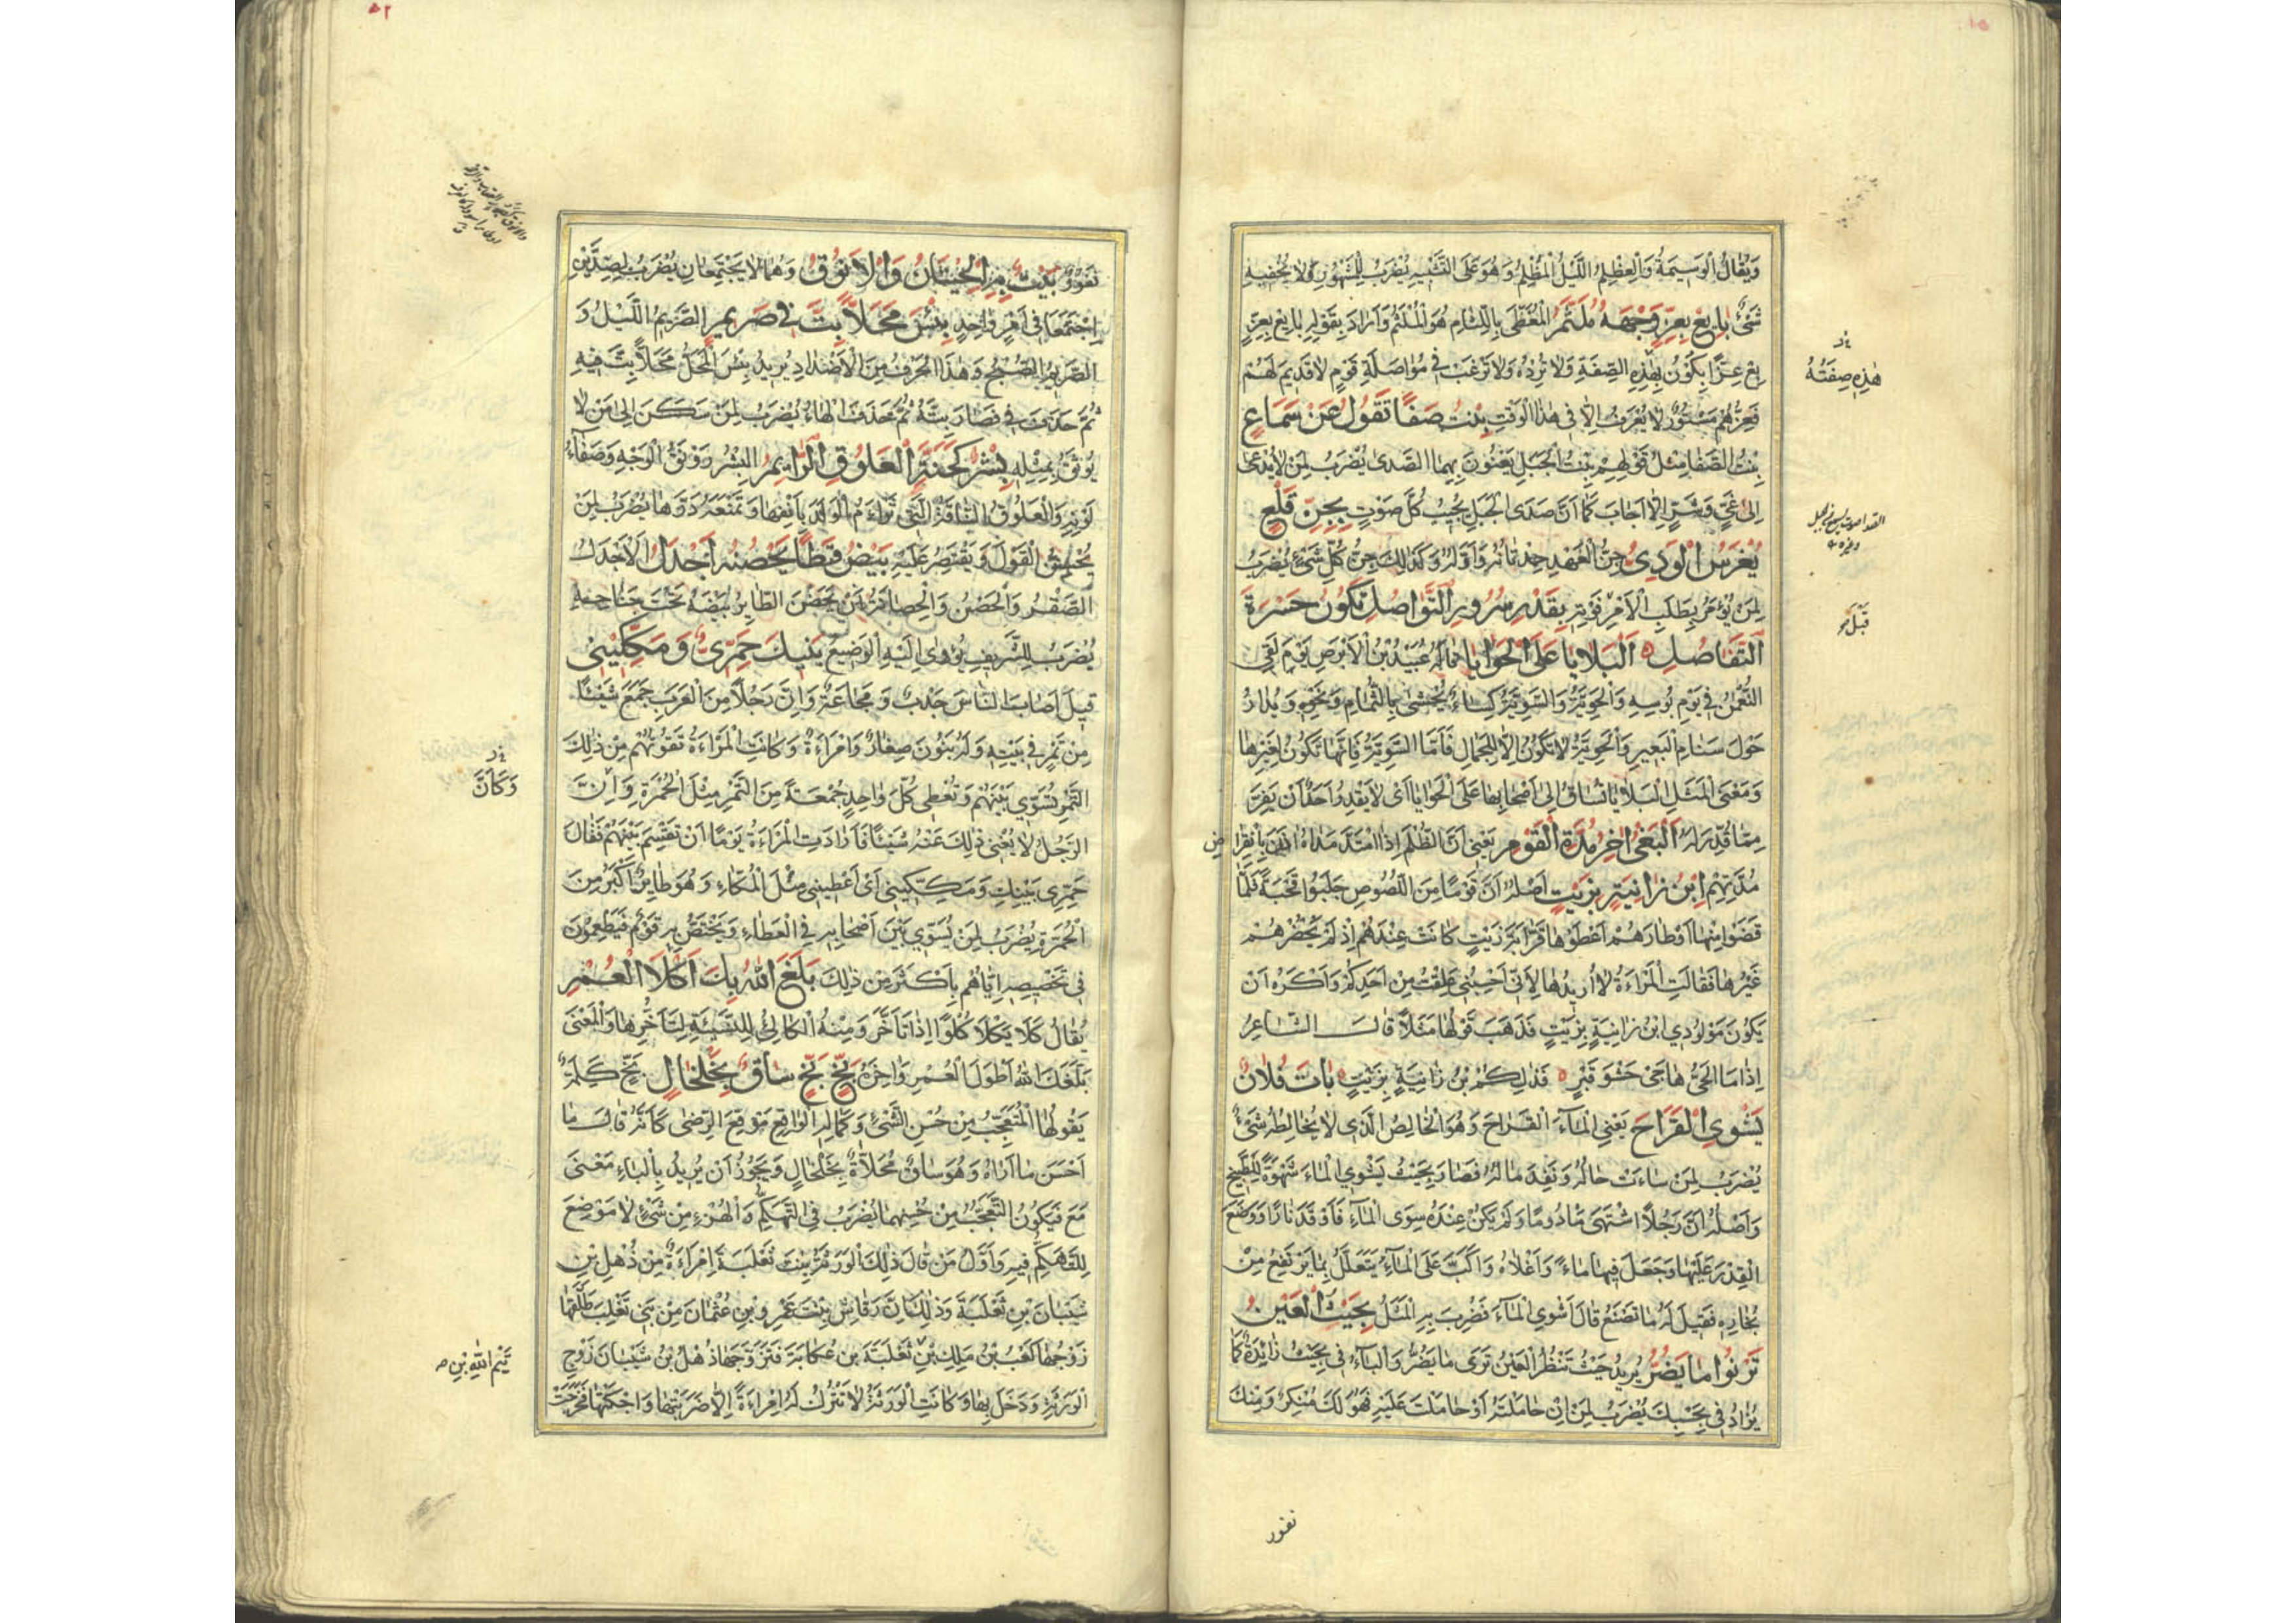 وَيُقَالُ الْوَسِيمَةُ وَالْعِظْلِمُ اللَّيْلُ الْمُظْلِمُ وَهُوَ عَلَى التَّشْبِيهِ يُضْرَبُ لِلْمَشْهُورِ وَلَا يُخْفِيهِ
شَىْءٌ بَايِعْ بِعِزٍّ وَجْهُهُ مُلَثَّمُ الْمُغَطَّى بِاللِّثَامِ هُوَ الْمُلَثَّمُ وَأَرَادَ بِقَوْلِهِ بَايِعْ بِعِزٍّ
بِعْ عِزًّا يَكُونُ بِهٰذِهِ الصِّفَةِ وَلَا تُرِدْهُ وَلَا تَرْغَبْ فِى مُوَاصَلَةِ قَوْمٍ لَا قَدِيمَ لَهُمْ
فَعِزُّهُمْ مَسْتُورٌ لَا يُعْرَفُ إِلَّا فِى هٰذَا الْوَقْتِ بِنْتُ صَفًا تَقُولُ عَنْ سَمَاعٍ
بِنْتُ الصَّفَا مِثْلُ قَوْلِهِمْ بِنْتُ الْجَبَلِ يَعْنُونَ بِهِمَا الصَّدَى يُضْرَبُ لِمَنْ لَا يُدْعَى
إِلَى غَىٍّ وَشَرٍّ إِلَّا أَجَابَ كَمَا أَنَّ صَدَى الْجَبَلِ يُجِيبُ كُلَّ صَوْتٍ بِجِنِّ قَلْعٍ
يُغْرَسُ الْوَدِىُّ جِنُّ الْعَهْدِ حِدْثَانُهُ وَأَوَّلُهُ وَكَذٰلِكَ جِنُّ كُلِّ شَىْءٍ يُضْرَبُ
لِمَنْ يُؤْمَرُ بِطَلَبِ الْأَمْرِ فَوْتِهِ بِقَدْرِ سُرُورِ التَّوَاصُلِ تَكُونُ حَسْرَةُ
التَّفَاصُلِ الْبَلَايَا عَلَى الْحَوَايَا قَالَهُ عُبَيْدُ بْنُ الْأَبْرَصِ يَوْمَ لَقِىَ
النُّعْمٰنَ فِى يَوْمِ بُوسِهِ وَالْحَوِيَّةُ وَالسَّوِيَّةُ كِسَاءٌ يُحْشَى بِالثُّمَامِ وَنَحْوِهِ وَيُدَارُ
حَوْلَ سَنَامِ الْبَعِيرِ وَالْحَوِيَّةُ لَا تَكُونُ إِلَّا لِلْجِمَالِ فَأَمَّا السَّوِيَّةُ فَإِنَّهَا تَكُونُ لِغَيْرِهَا
وَمَعْنَى الْمَثَلِ الْبَلَايَا تُسَاقُ إِلَى أَصْحَابِهَا عَلَى الْحَوَايَا أَىْ لَا يَقْدِرُ أَحَدٌ أَنْ يَفِرَّ
مِمَّا قُدِّرَ لَهُ الْبَغْىُ اٰخِرُ مُدَّةِ الْقَوْمِ يَعْنِى أَنَّ الظُّلْمَ إِذَا امْتَدَّ مَدَاهُ اٰذَنَ بِانْقِرَاضِ
مُدَّتِهِمْ اِبْنُ زَانِيَةٍ بِزَيْتٍ أَصْلُهُ أَنَّ قَوْمًا مِنَ اللُّصُوصِ جَلَبُوا قَحْبَةً فَلَمَّا
قَضَوْا مِنْهَا أَوْطَارَهُمْ أَعْطَوْهَا قِرَابَةَ زَيْتٍ كَانَتْ عِنْدَهُمْ إِذْ لَمْ يَحْضُرْهُمْ
غَيْرُهَا فَقَالَتِ الْمَرْأَةُ لَا أُرِيدُهَا لِأَنِّى أَحْسِبُنِى عَلِقْتُ مِنْ أَحَدِكُمْ وَأَكْرَهُ أَنْ
يَكُونَ مَوْلُودِى ابْنَ زَانِيَةٍ بِزَيْتٍ فَذَهَبَ قَوْلُهَا مَثَلًا قَالَ الشَّاعِرُ
إِذَا مَا الْحَىُّ هَاجَى حَشْوَ قَبْرٍ فَذٰلِكُمْ بْنُ زَانِيَةٍ بِزَيْتٍ بَاتَ فُلَانٌ
يَشْوِى الْقَرَاحَ يَعْنِى الْمَاءَ الْقَرَاحَ وَهُوَ الْخَالِصُ الَّذِى لَا يُخَالِطُهُ شَىْءٌ
يُضْرَبُ لِمَنْ سَاءَتْ حَالُهُ وَنَفِدَ مَالُهُ فَصَارَ بِحَيْثُ يَشْوِى الْمَاءَ شَهْوَةً لِلطَّبِيخِ
وَأَصْلُهُ أَنَّ رَجُلًا اشْتَهَى مَأْدُومًا وَلَمْ يَكُنْ عِنْدَهُ سِوَى الْمَاءِ فَأَوْقَدَ نَارًا وَوَضَعَ
الْقِدْرَ عَلَيْهَا وَجَعَلَ فِيهَا مَاءً وَأَغْلَاهُ وَأَكَبَّ عَلَى الْمَاءِ يَتَعَلَّلُ بِمَا يَرْتَفِعُ مِنْ
بُخَارِهِ فَقِيلَ لَهُ مَا تَصْنَعُ قَالَ أَشْوِى الْمَاءَ فَضُرِبَ بِهِ الْمَثَلُ بِحَيْثُ الْعَيْنُ
تَرْنُوا مَا يَضُرُّ يُرِيدُ حَيْثُ تَنْظُرُ الْعَيْنُ تَرَى مَا يَضُرُّ وَالْبَاءُ فِى بِحَيْثُ زَائِدَةٌ كَمَا
يُزَادُ فِى بِحَسْبِكَ يُضْرَبُ لِمَنْ إِنْ جَامَلْتَهُ أَوْ حَامَلْتَ عَلَيْهِ فَهُوَ لَكَ مُنْكِرٌ وَمِنْكَ
هٰذِهِ صِفَتُهُ
قَبْلَ
نفور
٥٢
نَفُورٌ بَيْتٌ مِنَ الْحِيتَانِ وَالْأَنُوقِ وَهُمَا لَا يَجْتَمِعَانِ يُضْرَبُ لِضِدَّيْنِ
اجْتَمَعَا فِى أَمْرٍ وَاحِدٍ بِئْسَ مَحَلًّا بِتَّ فِى صَرِيمٍ الصَّرِيمُ اللَّيْلُ وَ
الصَّرِيمُ الصُّبْحُ وَهٰذَا الْحَرْفُ مِنَ الْأَضْدَادِ يُرِيدُ بِئْسَ الْمَحَلُّ مَحَلًّا بِتَّ فِيهِ
ثُمَّ حَذَفَ فِى فَصَارَ بِتَّهُ ثُمَّ حَذَفَ الْهَاءَ يُضْرَبُ لِمَنْ سَكَنَ إِلَى مَنْ لَا
يُوثَقُ بِمِثْلِهِ بِشْرٌ كَحَنَّةِ الْعَلُوقِ الرَّائِمِ الْبِشْرُ رَوْنَقُ الْوَجْهِ وَصَفَاءُ
لَوْنِهِ وَالْعَلُوقُ النَّاقَةُ الَّتِى تَرْأَمُ الْوَلَدَ بِأَنْفِهَا وَتَمْنَعُهُ دَرَّهَا يُضْرَبُ لِمَنْ
يُحْسِنُ الْقَوْلَ وَيَقْتَصِرُ عَلَيْهِ بَيْضُ قَطًا يَحْضُنُهُ أَجْدَلُ الْأَجْدَلُ
الصَّقْرُ وَالْحَضْنُ وَالْحِضَانَةُ أَنْ يَحْضُنَ الطَّايِرُ بَيْضَهُ تَحْتَ جَنَاحِهِ
يُضْرَبُ لِلشَّرِيفِ يُؤْوِى إِلَيْهِ الْوَضِيعَ بَيْنِكِ حَمِّرِى وَمَكِّكِينِى
قِيلَ أَصَابَ النَّاسَ جَدْبٌ وَمَجَاعَةٌ وَإِنَّ رَجُلًا مِنَ الْعَرَبِ جَمَعَ شَيْئًا
مِنْ تَمْرٍ فِى بَيْتِهِ وَلَهُ بَنُونَ صِغَارٌ وَامْرَأَةٌ وَكَانَتِ الْمَرْأَةُ تَقُوتُهُمْ مِنْ ذٰلِكَ
التَّمْرِ تُسَوِّى بَيْنَهُمْ وَتُعْطِى كُلَّ وَاحِدٍ جُمْعَةً مِنَ التَّمْرِ مِثْلَ الْحُمَّرَةِ وَإِنَّ
الرَّجُلَ لَا يُغْنِى ذٰلِكَ عَنْهُ شَيْئًا فَأَرَادَتِ الْمَرْأَةُ يَوْمًا أَنْ تَقْسِمَ بَيْنَهُمْ فَقَالَ
حَمِّرِى بَيْنِكِ وَمَكِّكِينِى أَىْ أَعْطِينِى مِثْلَ الْمُكَّاءِ وَهُوَ طَايِرٌ أَكْبَرُ مِنَ
الْحُمَّرَةِ يُضْرَبُ لِمَنْ يُسَوِّى بَيْنَ أَصْحَابِهِ فِى الْعَطَاءِ وَيَخْتَصُّ بِهِ قَوْمٌ فَيَطْمَعُونَ
فِى تَخْصِيصِهِ إِيَّاهُمْ بِأَكْثَرَ مِنْ ذٰلِكَ بَلَغَ اللهُ بِكَ أَكْلَأَ الْعُمْرِ
يُقَالُ كَلَأَ يَكْلَأُ كُلُوءًا إِذَا تَأَخَّرَ وَمِنْهُ الْكَالِئُ لِلنَّسِيئَةِ لِتَأَخُّرِهَا وَالْمَعْنَى
بَلَّغَكَ اللهُ أَطْوَلَ الْعُمْرِ وَاٰخِرَهُ بَخٍّ بَخٍّ سَاقٌ بِخَلْخَالٍ بَخٍّ كَلِمَةٌ
يَقُولُهَا الْمُتَعَجِّبُ مِنْ حُسْنِ الشَّىْءِ وَكَمَالِهِ الْوَاقِعِ مَوْقِعَ الرِّضَى كَأَنَّهُ قَالَ مَا
أَحْسَنَ مَا أَرَاهُ وَهُوَ سَاقٌ مُحَلَّاةٌ بِخَلْخَالٍ وَيَجُوزُ أَنْ يُرِيدَ بِالْبَاءِ مَعْنَى
مَعَ فَيَكُونُ التَّعَجُّبُ مِنْ حُسْنِهِمَا يُضْرَبُ فِى التَّهَكُّمِ وَالْهُزْءِ مِنْ شَىْءٍ لَا مَوْضِعَ
لِلتَّهَكُّمِ فِيهِ وَأَوَّلُ مَنْ قَالَ ذٰلِكَ الْوَرْثَةُ بِنْتُ ثَعْلَبَةَ اِمْرَأَةٌ مِنْ ذُهْلِ بْنِ
شَيْبَانَ بْنِ ثَعْلَبَةَ وَذٰلِكَ أَنَّ رَقَاشِ بِنْتَ عَمْرِو بْنِ عُثْمَانَ مِنْ بَنِى تَغْلِبَ طَلَّقَهَا
زَوْجُهَا كَعْبُ بْنُ مٰلِكِ بْنِ ثَعْلَبَةَ بْنِ عُكَابَةَ فَتَزَوَّجَهَا ذُهْلُ بْنُ شَيْبَانَ زَوْجُ
الْوَرْثَةِ وَدَخَلَ بِهَا وَكَانَتِ الْوَرْثَةُ لَا تَتْرُكُ لَهُ امْرَأَةً إِلَّا ضَرَبَتْهَا وَأَجْلَتْهَا فَخَرَجَتْ
وَكَأَنَّ
تَيْمِ اللهِ بْنِ